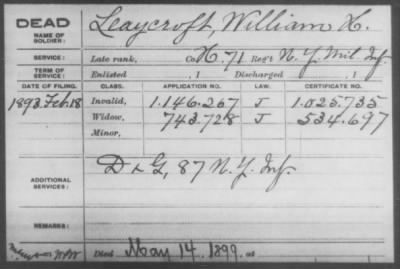 DEAD
NAME OF SOLDIER: Leaycroft, William H.
SERVICE: Late rank, Co. H. 71 Reg't N. Y. Mil. Inf.
TERM OF SERVICE: Enlisted , 1 Discharged , 1
DATE OF FILING. CLASS. APPLICATION NO. LAW. CERTIFICATE NO.
1893 Feb. 18 Invalid, 1.146.267 J 1.025.735
Widow, 743.728 J 534.697
Minor,
ADDITIONAL SERVICES: D & G, 87 N. Y. Inf.
REMARKS:
Died May 14, 1899, at